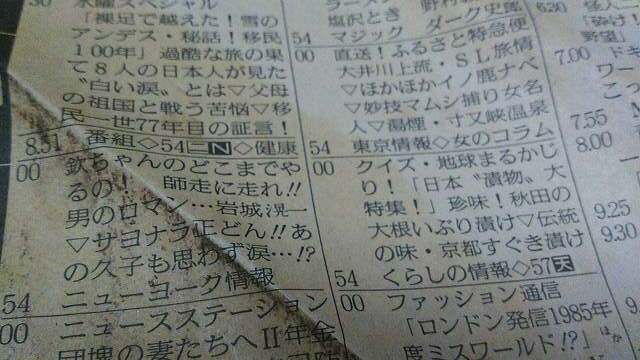 水曜スペシャル
「裸足で越えた!雪の
アンデス・秘話!移民
100年」過酷な旅の果
て8人の日本人が見た
〝白い涙〟とは▽父母
の祖国と戦う苦悩▽移
民一世77年目の証言!
8.51 番組◇54N◇健康
00 欽ちゃんのどこまでや
るの! 師走に走れ!!
男のロマン…岩城滉一
▽サヨナラ正どん!!あ
の久子も思わず涙…!?
54 ニューヨーク情報
00 ニュースステーション
団塊の妻たちへⅡ年金
ラーメン
塩沢とき 野村
54 マジック ダーク史郎
00 直送!ふるさと特急便
大井川上流・SL旅情
▽ほかほかイノ鹿ナベ
▽妙技マムシ捕り女名
人▽湯煙・寸又峡温泉
54 東京情報◇女のコラム
00 クイズ・地球まるかじ
り!「日本〝漬物〟大
特集!」珍味!秋田の
大根いぶり漬け▽伝統
の味・京都すぐき漬け
54 くらしの情報◇57天
00 ファッション通信
「ロンドン発信1985年
度ミスワールド!?」ほか
6.30 怪人二
野望」
7.00 ドキ
ワー
こっ
7.55
8.00
9.25
9.30